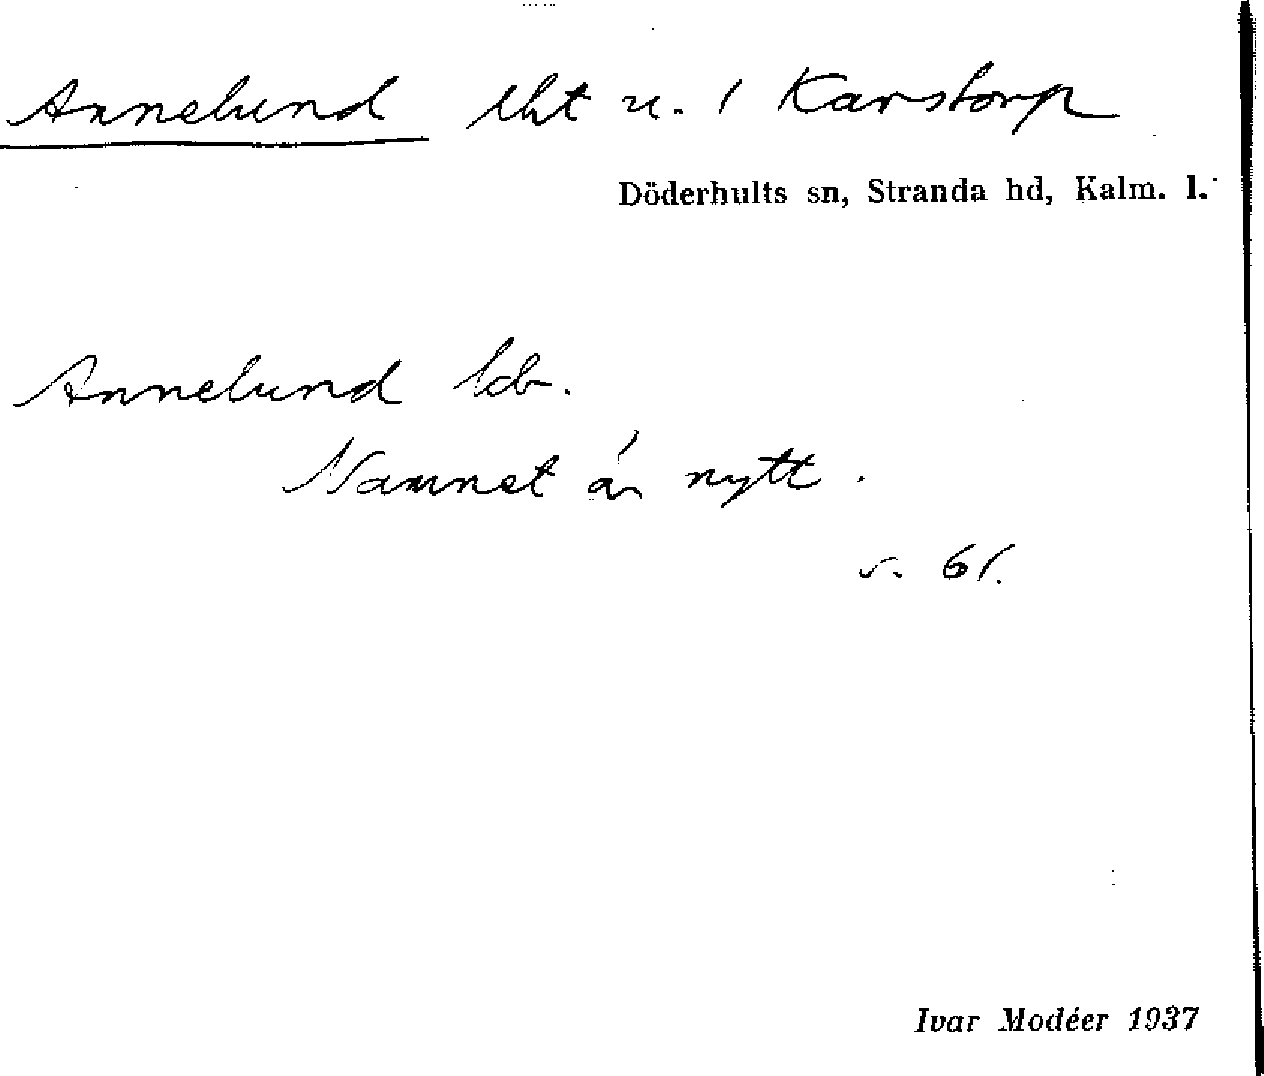 Annelund lht u. 1 Karstorp
Döderhults sn, Stranda hd, Kalm. l.
Annelund
Namnet är nytt.
s. 61.
Ivar Modéer 1937